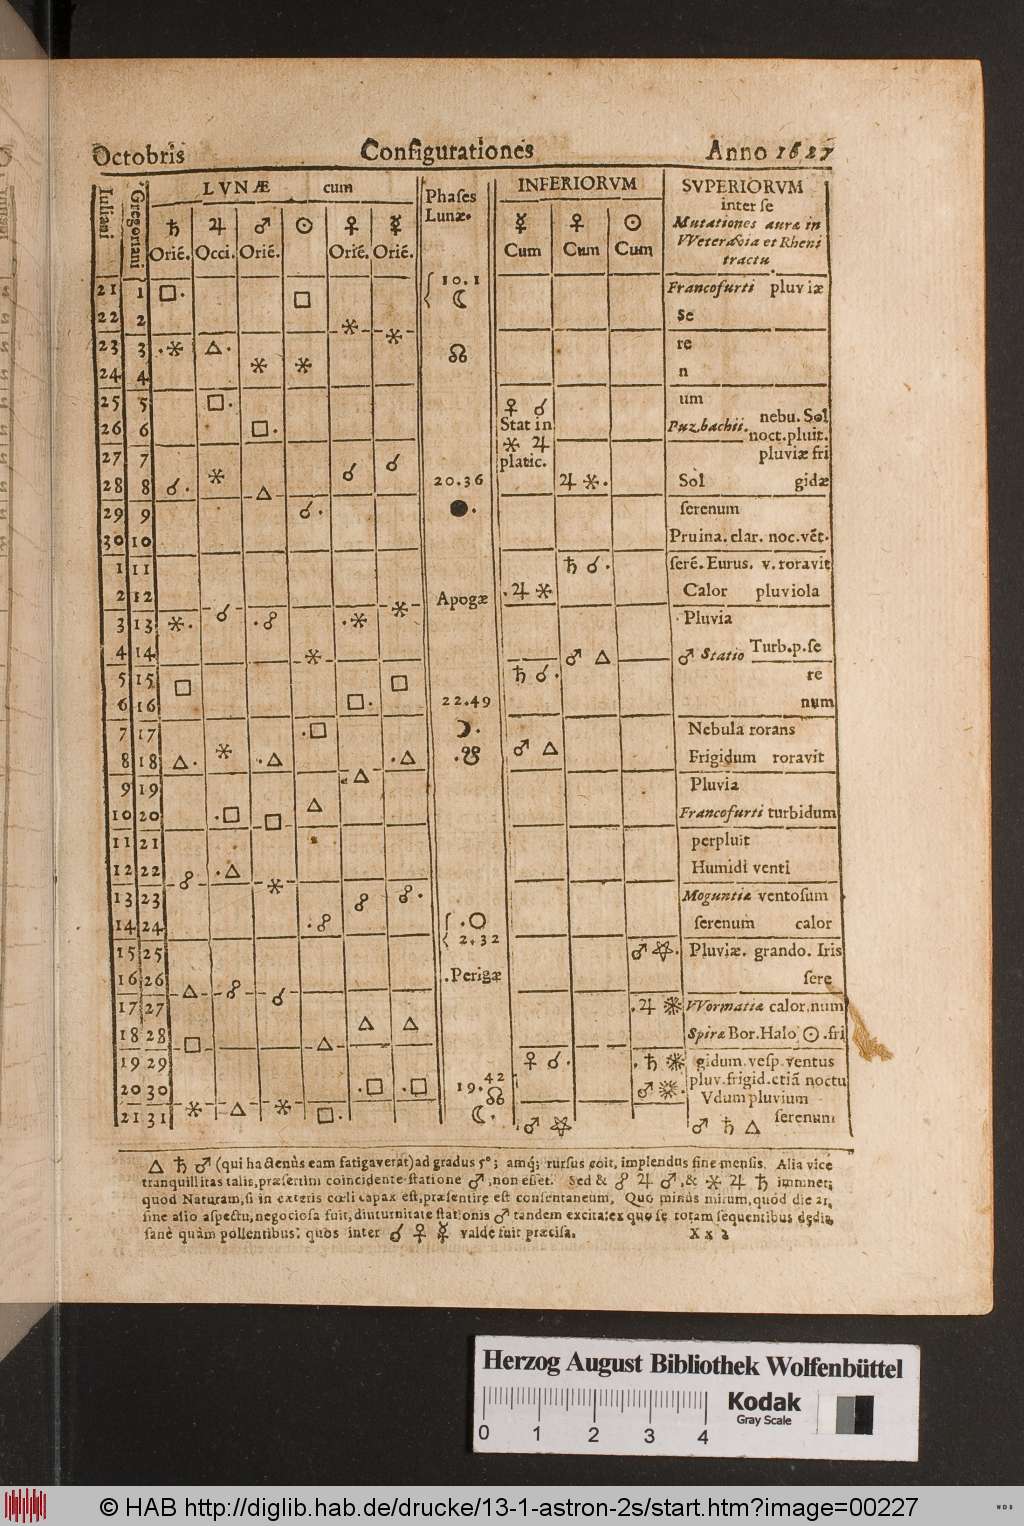 Octobris Configurationes Anno 1627
Iuliani Gregoriani LVNÆ cum Phases Lunæ. INFERIORVM SVPERIORVM
inter se
Mutationes auræ in
VVeteravia et Rheni
tractu.
♄ ♃ ♂ ☉ ♀ ☿ ☿ ♀ ☉
Orié. Occi. Orié. Orié. Orié. Cum Cum Cum
21 1 □. □ 10.1 ☾ Francofurti pluviæ
22 2 ⚹ ⚹ Se
23 3 .⚹ △. ☊ re
24 4 ⚹ ⚹ n
25 5 □. ♀ ☌ um
26 6 □. Stat in Puzbachii. nebu. Sol
noct.pluit.
27 7 ⚹ ☌ ☌ ⚹ ♃ platic. pluviæ fri
28 8 ☌. △ 20.36 ♃ ⚹. Sol gidæ
29 9 ☌. ●. serenum
30 10 Pruina. clar. noc.vét.
1 11 ♄ ☌. seré. Eurus. v. roravit
2 12 ☌ ⚹ Apogæ .♃ ⚹ Calor pluviola
3 13 ⚹. .☍ .⚹ Pluvia
4 14 ⚹ ♂ △ ♂ Statio Turb.p.se
5 15 □ □ ♄ ☌. re
6 16 □. 22.49 num
7 17 .□ ☽. Nebula rorans
8 18 △. ⚹ .△ .△ .☋ ♂ △ Frigidum roravit
9 19 △ Pluvia
10 20 .□ □ △ Francofurti turbidum
11 21 perpluit
12 22 ☍ .△ ⚹ Humidi venti
13 23 ☍ ☍. Moguntiæ ventosum
14 24 .☍ .○ 2.32 serenum calor
15 25 ♂ ⚝. Pluviæ. grando. Iris
16 26 △ ☍ ☌ .Perigæ sere
17 27 △ △ .♃ VVormatiæ calor.num
18 28 □ △ Spiræ Bor.Halo ☉.fri
19 29 ♀ ☌. .♄ gidum.vesp.ventus
20 30 .□ .□ 19.42 ☊ ♂ pluv.frigid.etiã noctu
Vdum pluvium
21 31 ⚹ △ ⚹ □. ☾. ♂ ⚝ ♂ ♄ △ serenum
△ ♄ ♂ (qui hactenùs eam fatigaverat) ad gradus 5°; amq; rursus coit, implendus fine mensis. Alia vice
tranquillitas talis, præsertim coincidente statione ♂, non esset. Sed & ☍ ♃ ♂, & ⚹ ♃ ♄ imminet;
quod Naturam, si in exteris cœli capax est, præsentire est consentaneum, Quo minùs mirum, quòd die 21,
sine alio aspectu, negociosa fuit, diuturnitate stationis ♂ tandem excitata: ex quo se totam sequentibus dedit,
sanè quàm pollentibus: quos inter ☌ ♀ ☿ valdè fuit præcisa. Xx 2
Herzog August Bibliothek Wolfenbüttel
0 1 2 3 4
Kodak
Gray Scale
© HAB http://diglib.hab.de/drucke/13-1-astron-2s/start.htm?image=00227